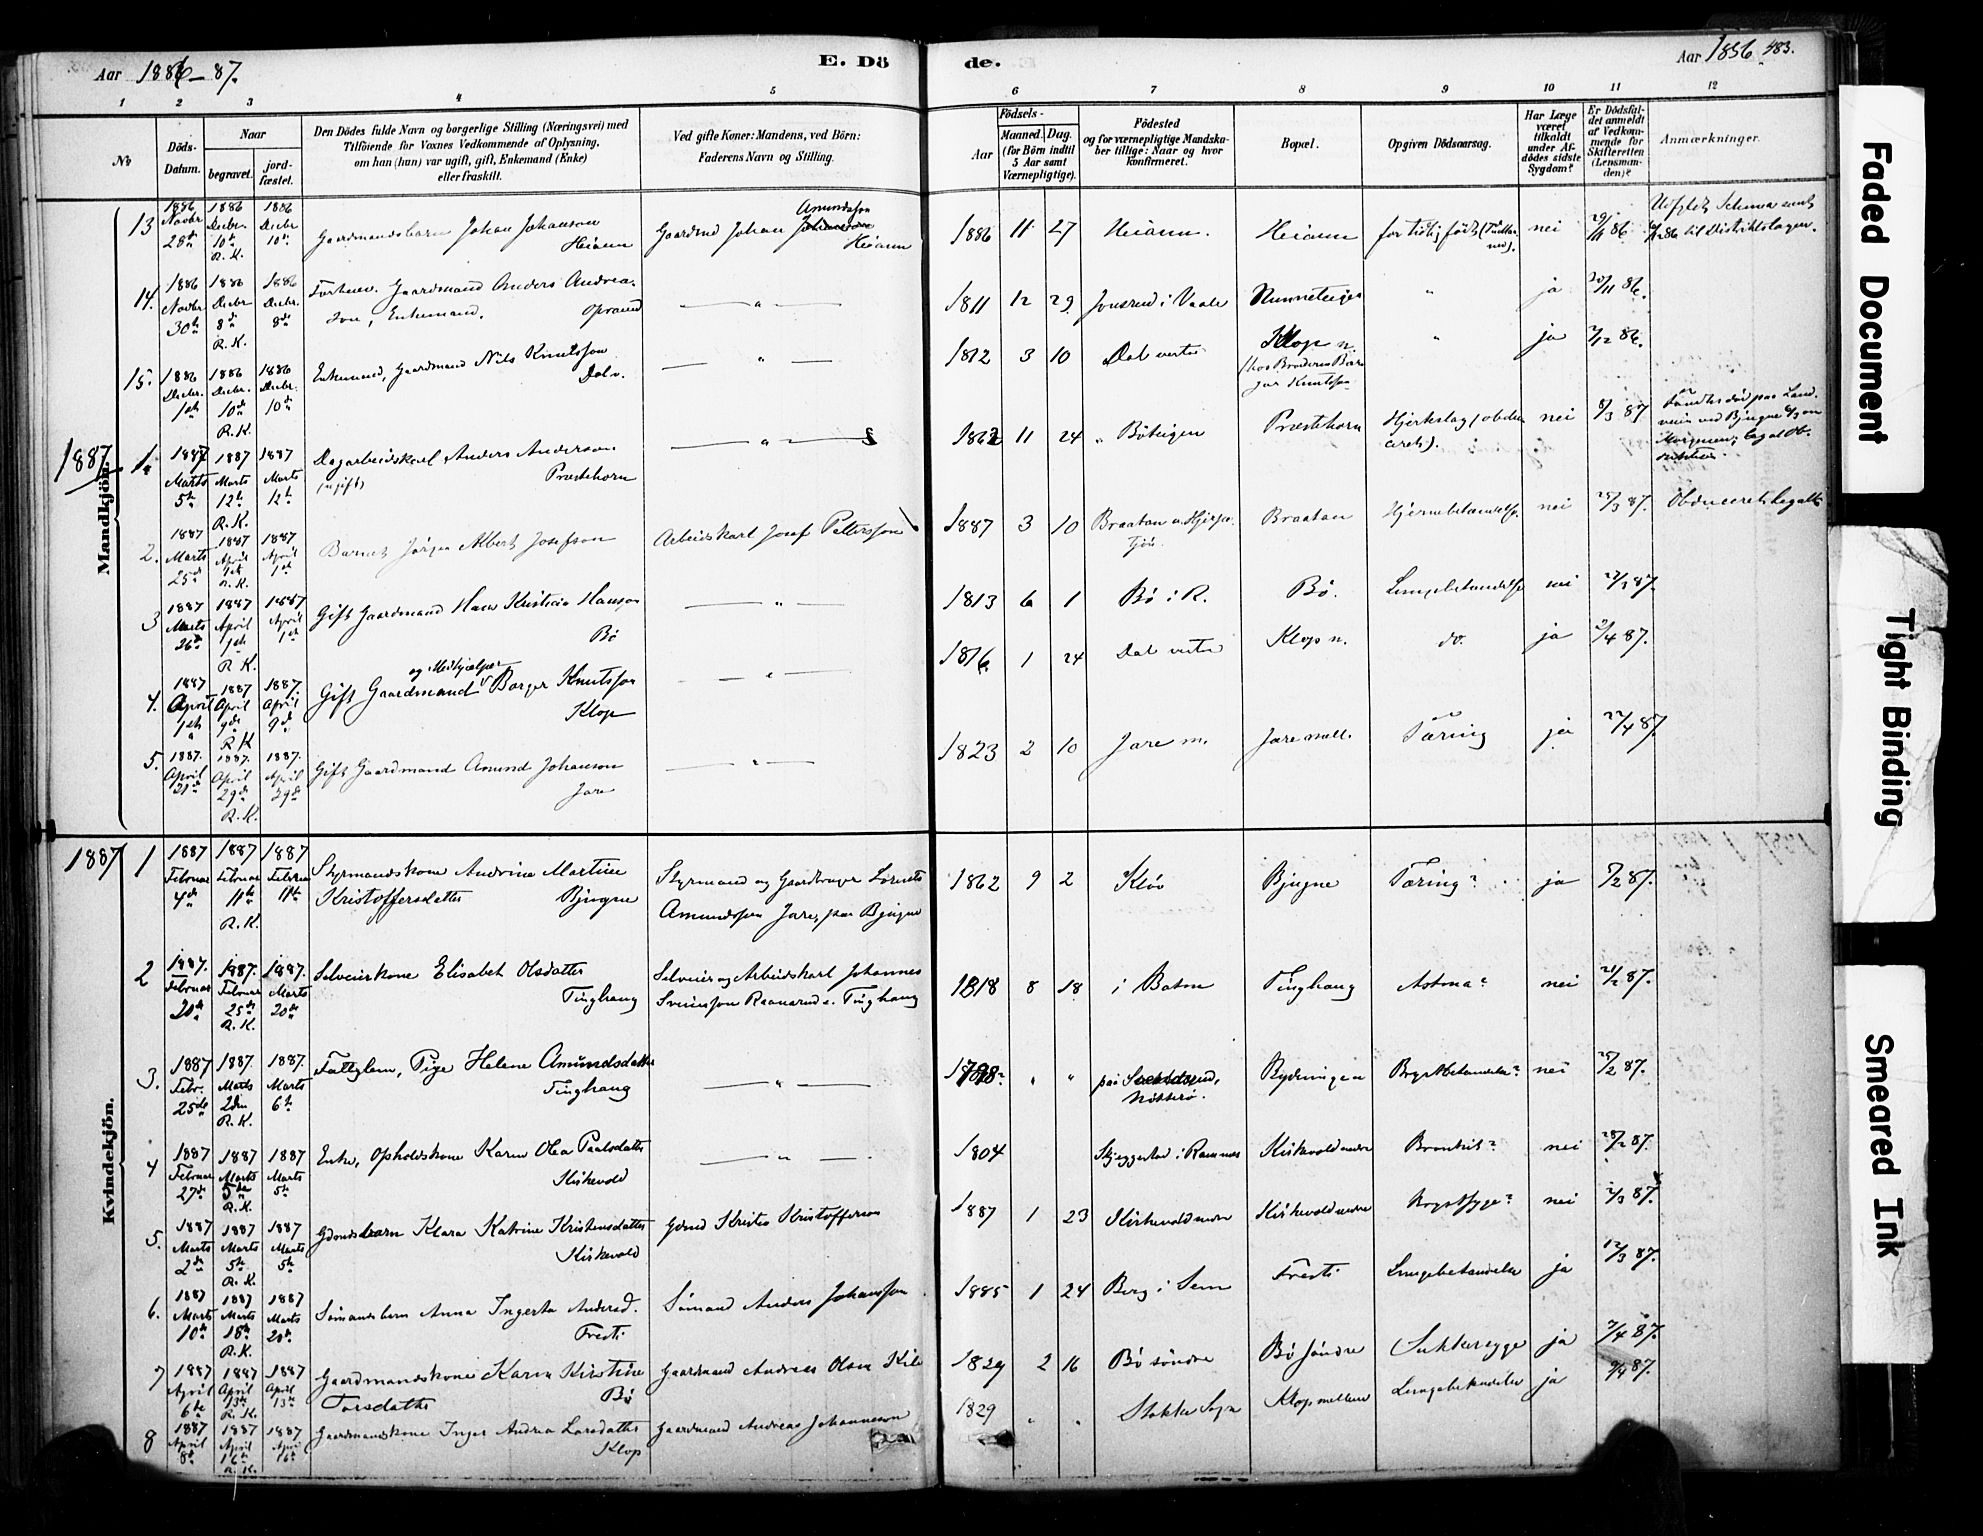 Aar 1886-87.
E. Dö
de.
Aar 1886. 483.
1 2 3 4 5 6 7 8 9 10 11 12
No
Döds-
Datum.
Naar
begravet.
jord-
fæstet.
Den Dödes fulde Navn og borgerlige Stilling (Næringsvei) med
Tilföiende for Voxnes Vedkommende af Oplysning,
om han (hun) var ugift, gift, Enkemand (Enke)
eller fraskilt.
Ved gifte Koner: Mandens, ved Börn:
Faderens Navn og Stilling.
Födsels-
Aar
Maaned.
Dag.
(for Börn indtil
5 Aar samt
Værnepligtige).
Födested
og for værnepligtige Mandska-
ber tillige: Naar og hvor
konfirmeret.
Bopæl.
Opgiven Dödsaarsag.
Har Læge
været
tilkaldt
under Af-
dödes sidste
Sygdom?
Er Dödsfal-
det anmeldt
af Vedkom-
mende for
Skifteretten
(Lensman-
den)?
Anmærkninger.
Mandkjön.
13 1886 Novbr 28de 1886 Decbr. 10de R. K. 1886 Decbr 10de
Gaardmandsbarn Johan Johanson
Heiann
Gaardmd Johan Amundsen
Heiann
1886 11 27 Heiann. Heiann for tidlig født nei 29/11 86
14. 1886 Novbr 30te 1886 Decbr 8de R. K. 1886 Decbr. 8de
Forhenv. Gaardmand Anders Andrea-
son, Enkemand.
1811 12 29 i Vaale ja 30/11 86.
15. 1886 Decbr. 1ste 1886 Decbr. 10de R. K. 1886 Decbr. 10de
Enkemand, Gaardmand Nils Knutsson
Dal v.
1812 3 10 Dal vestre Klop n.
(hos Broderen Bor-
ger Knutsson
ja 2/12 86.
1887
1. 1887 Marts 5te 1887 Marts 12te R. K. 1887 Marts 12te
Dagarbeidskarl Anders Anderson
(ugift) Præstehorn
1862 11 24 Böteigen Præstehorn Hjerteslag (obdu-
ceret). nei 8/3 87
2. 1887 Marts 25de 1887 April 1ste R. K. 1887 April 1ste
Barnet Jörgen Albert Josefson
Arbeidskarl Josef Pettersson
1887 3 10 Braatan Braatan Hjernebetændelse nei 25/3 87.
3 1887 Marts 26de 1887 April 1ste R. K. 1887 April 1ste
Gift Gaardmand Hans Kristian Hanson
Bö
1813 6 1 Bö i R. Bö. Lungebetændelse nei 27/3 87.
4. 1887 April 1ste 1887 April 9de R. K. 1887. April 9de
og Medhjælper
Gift Gaardmand Borger Knutsson
Klop
1816 1 24 Dal vestre Klop n. do. ja 2/4 87.
5. 1887. April 21de 1887. April 29de R. K. 1887. April 29de
Gift Gaardmand Amund Johanson
Jare
1823 2 10 Jare m. Jare mell. Tæring ja 22/4 87
Kvindekjön.
1887
1 1887 Februar 4de 1887 Februar 11te R. K. 1887 Februar 11te
Styrmandskone Andrine Martine
Kristoffersdatter Bjugne
Styrmand og Gaardbruger Lorents
Amundsen Jare, paa Bjugne
1862 9 2 Klöv Bjugne Tæring? ja 5/2 87.
2 1887. Februar 20de 1887. Februar 25de R. K. 1887. Marts 20de
Selveierkone Elisabet Olsdatter
Tinghaug
Selveier og Arbeidskarl Johannes
Sveinsson Raanerud v. Tinghaug
1818 8 18 Tinghaug Astma? nei 21/2 87.
3. 1887 Febr. 25de 1887. Marts 2den R. K. 1887. Marts 6te
Fattiglem, Pige Helene Amundsdatter
Tinghaug
Nötterö. Rydningen Brystbetændelse? nei 25/2 87.
4 1887 Februar 27de 1887 Marts 5te R. K. 1887 Marts 5te
Enke, Opholdskone Karen Olea Paulsdatter
Kirkevold
1804 Skjeggestad i Ramnes Kirkevold nedre Bronkit? nei 28/2 87.
5. 1887 Marts 2de 1887 Marts 5te R. K. 1887 Marts 5te
Gdmdsbarn Klara Katrine Kristensdatter
Kirkevold
Gdmd Kristen Kristofferson
1887 1 23 Kirkevold nedre Kirkevold nedre Brystsyge? nei 2/3 87.
6. 1887 Marts 10de 1887 Marts 18de R. K. 1887 Marts 20de
Sömandsbarn Anna Ingerta Andersd.
Tresti
Sömand Anders Johansson
1885 1 24 Berg i Sem Tresti Lungebetændelse ja 12/3 87.
7 1887 April 6te 1887 April 13de R. K. 1887 April 13de
Gaardmandskone Karen Kirstine
Torsdatter Bö
Gaardmand Andreas Olsen Kile
1829 2 16 Bö söndre Bö söndre Sukkersyge ja 7/4 87.
8 1887 April 8de 1887 April 16de R. K. 1887 April 16de
Gaardmandskone Inger Andrea Larsdatter
Klop
Gaardmand Andreas Johanneson
1829 Stokke Sogn Klop mellem Lungebetændelse ja 9/4 87.
Faded Document
Tight Binding
Smeared Ink